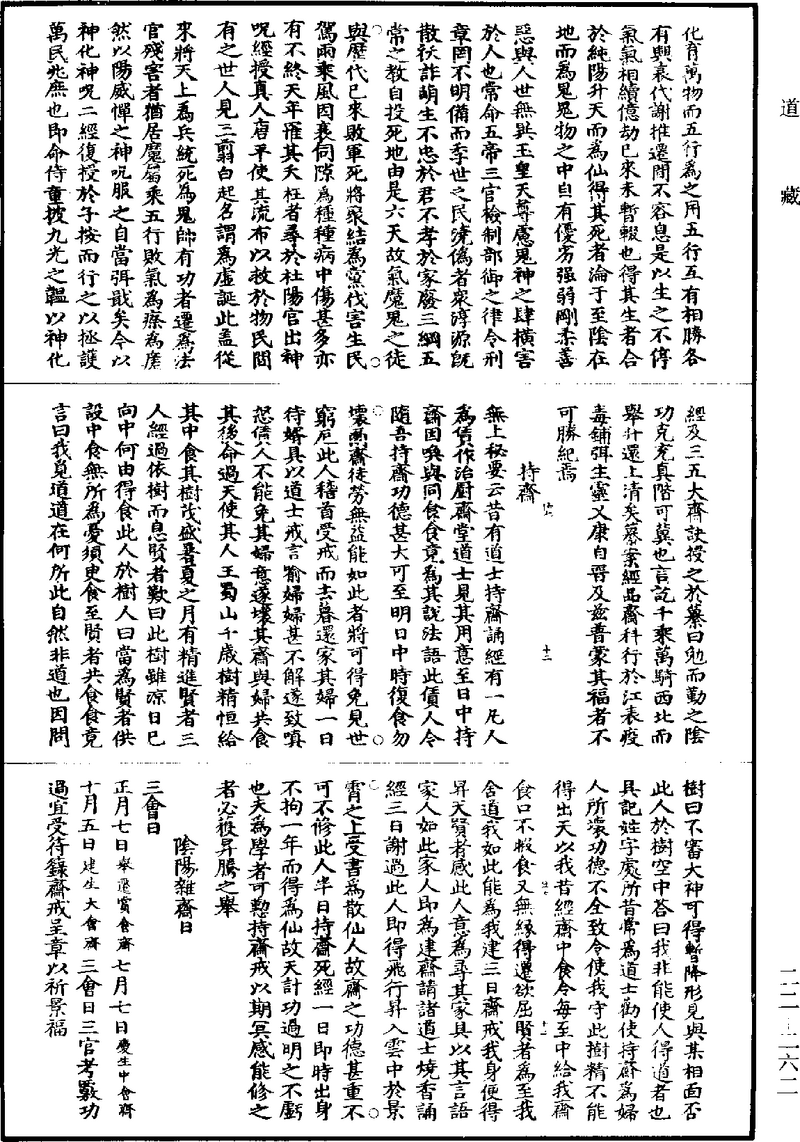 道藏
化育萬物而五行為之用五行互有相勝各
有興衰代謝推遷間不容息是以生之不停
氣氣相續億劫已來未暫輟也得其生者合
於純陽升天而為仙得其死者淪于至陰在
地而為鬼鬼物之中自有優劣強弱剛柔善
惡與人世無異玉皇天尊慮鬼神之肆橫害
於人也常命五帝三官檢制部御之律令刑
章罔不明備而季世之民澆偽者衆淳源旣
散祅詐萌生不忠於君不孝於家廢三綱五
常之教自投死地由是六天故氣魔鬼之徒
與歷代已來敗軍死將聚結為黨伐害生民
駕雨乘風因衰伺隙為種種病中傷甚多亦
有不終天年罹其夭枉者尋於杜陽宮出神
呪經授真人唐平使其流布以救於物民間
有之世人見三翦白起名謂為虛誕此盖從
來將天上為兵統死為鬼帥有功者遷為法
官殘害者猶居魔屬乘五行敗氣為瘵為厲
然以陽威憚之神呪服之自當弭戢矣今以
神化神呪二經復授於子按而行之以拯護
萬民危庶也即命侍童披九光之韞以神化
經及三五大齋訣授之於蒹曰勉而勤之陰
功克充真階可冀也言訖千乘萬騎西北而
舉升還上清矣蒹案經品齋科行於江表疫
毒鋪弭生靈乂康自晉及茲普蒙其福者不
可勝紀焉
持齋
無上秘要云昔有道士持齋誦經有一凡人
為債作治廚齋堂道士見其用意至日中持
齋因喚與同食食竟為其說法語此債人令
隨吾持齋功德甚大可至明日中時復食勿
壞䘮齋徒勞無益能如此者將可得免見世
窮厄此人稽首受戒而去暮還家其婦一日
待婿具以道士戒言喻婦婦甚不解遂致嗔
怒債人不能免其婦意遂壞其齋與婦共食
其後命過天使其人王蜀山千歲樹精恒給
其中食其樹茂盛暑夏之月有精進賢者三
人經過依樹而息賢者歎曰此樹雖凉日已
向中何由得食此人於樹人曰當為賢者供
設中食無所為憂須臾食至賢者共食食竟
言曰我覓道道在何所此自然非道也因問
樹曰不審大神可得暫降形見與某相面否
此人於樹空中荅曰我非能使人得道者也
具記姓字處所昔嘗為道士勸使持齋為婦
人所壞功德不全致令使我守此樹精不能
得出天以我昔經齋中食令每至中給我齋
食口不輟食又無緣得遷欲屈賢者為至我
舍道我如此能為我建三日齋戒我身便得
昇天賢者感此人意為尋其家具以其言語
家人如此家人即為建齋請諸道士燒香誦
經三日謝過此人即得飛行昇入雲中於景
霄之上受書為散仙人故齋之功德甚重不
可不修此人半日持齋死經一日即時出身
不拘一年而得為仙故天計功過明之不虧
也夫為學者可懃持齋戒以期冥感能修之
者必獲昇騰之舉
陰陽雜齋日
三會日
正月七日舉遷賞會齋七月七日慶生中會齋
十月五日建生大會齋三會日三官考覈功
過宜受符籙齋戒呈章以祈景福
二二-二六二